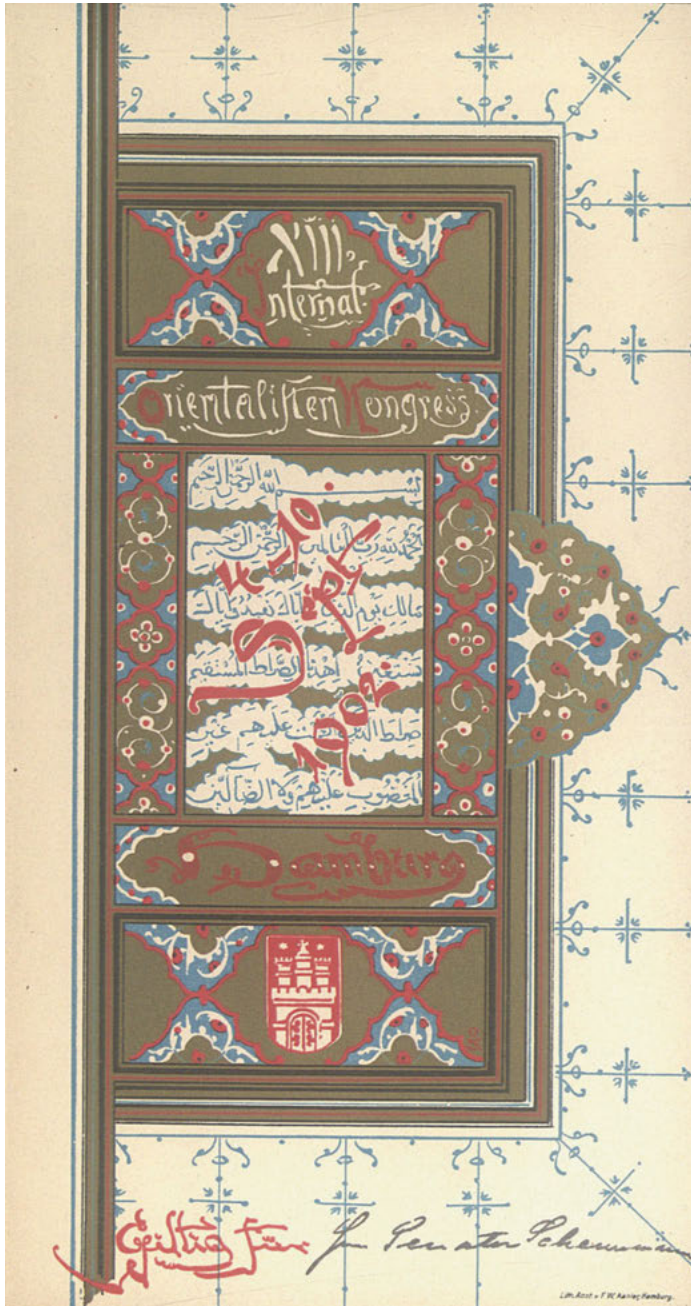 XIII.
Internat.
Orientalisten Kongress.
بِسْمِ اللهِ الرَّحْمٰنِ الرَّحِيمِ
الْحَمْدُ لِلّٰهِ رَبِّ الْعَالَمِينَ الرَّحْمٰنِ الرَّحِيمِ
مَالِكِ يَوْمِ الدِّينِ إِيَّاكَ نَعْبُدُ وَإِيَّاكَ
نَسْتَعِينُ اهْدِنَا الصِّرَاطَ الْمُسْتَقِيمَ
صِرَاطَ الَّذِينَ أَنْعَمْتَ عَلَيْهِمْ غَيْرِ
الْمَغْضُوبِ عَلَيْهِمْ وَلَا الضَّالِّينَ
4-10.
Sept.
1902.
Hamburg
Giltig für Senator
Lith. Anst. v. F. W. Hamburg.